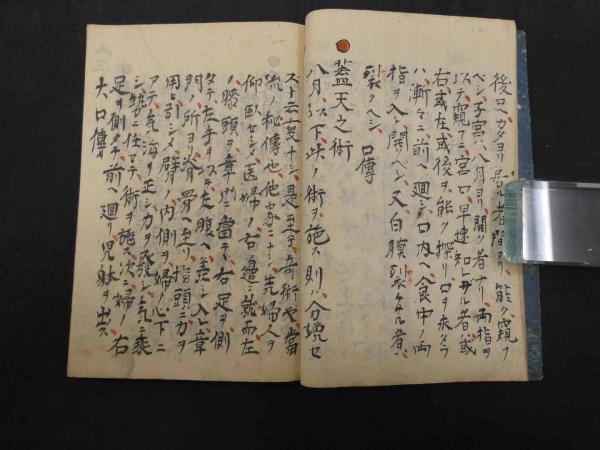 後ロヘカタヨリ居ル者間々アリ能ク窺フ
ベシ子宮ハ八月ヨリ開ク者ナリ両指ヲ
以テ窺フニ宮口早速知レザル者ハ或
右或左或後ヲ能ク探リ口ヲ求メテ
漸々ニ前ヘ廻シ口内ヘ食中ノ両
指ヲ入レ開クベシ又白膜裂ケザル者ハ
裂クヘシ 口傳
蓋天之術
八月以下此ノ術ヲ施ス則ハ分娩セ
ズト云フ叓ナシ是至テ奇術也當
流ノ秘傳也他家ニナシ先婦人ヲ
仰臥セシメ医婦ノ右邉ニ就而左
ノ膝頭ヲ章門ニ當テ右足ヲ側
タテ左手ヲ以テ左腹ヘ差シ入レ章
門ノ所ヨリ脊骨ヘ至リ指頭ニ力ヲ
用ヒ引シメ臂ノ内側ヲ婦ノ心下ニ
アテ気海ヲ正シ力ヲ発シ気ニ乗
シ勢ニ任セテ術ヲ施ス次ニ婦ノ右
足ヲ側タテ前ヘ廻リ児躰ヲ出ス
大口傳